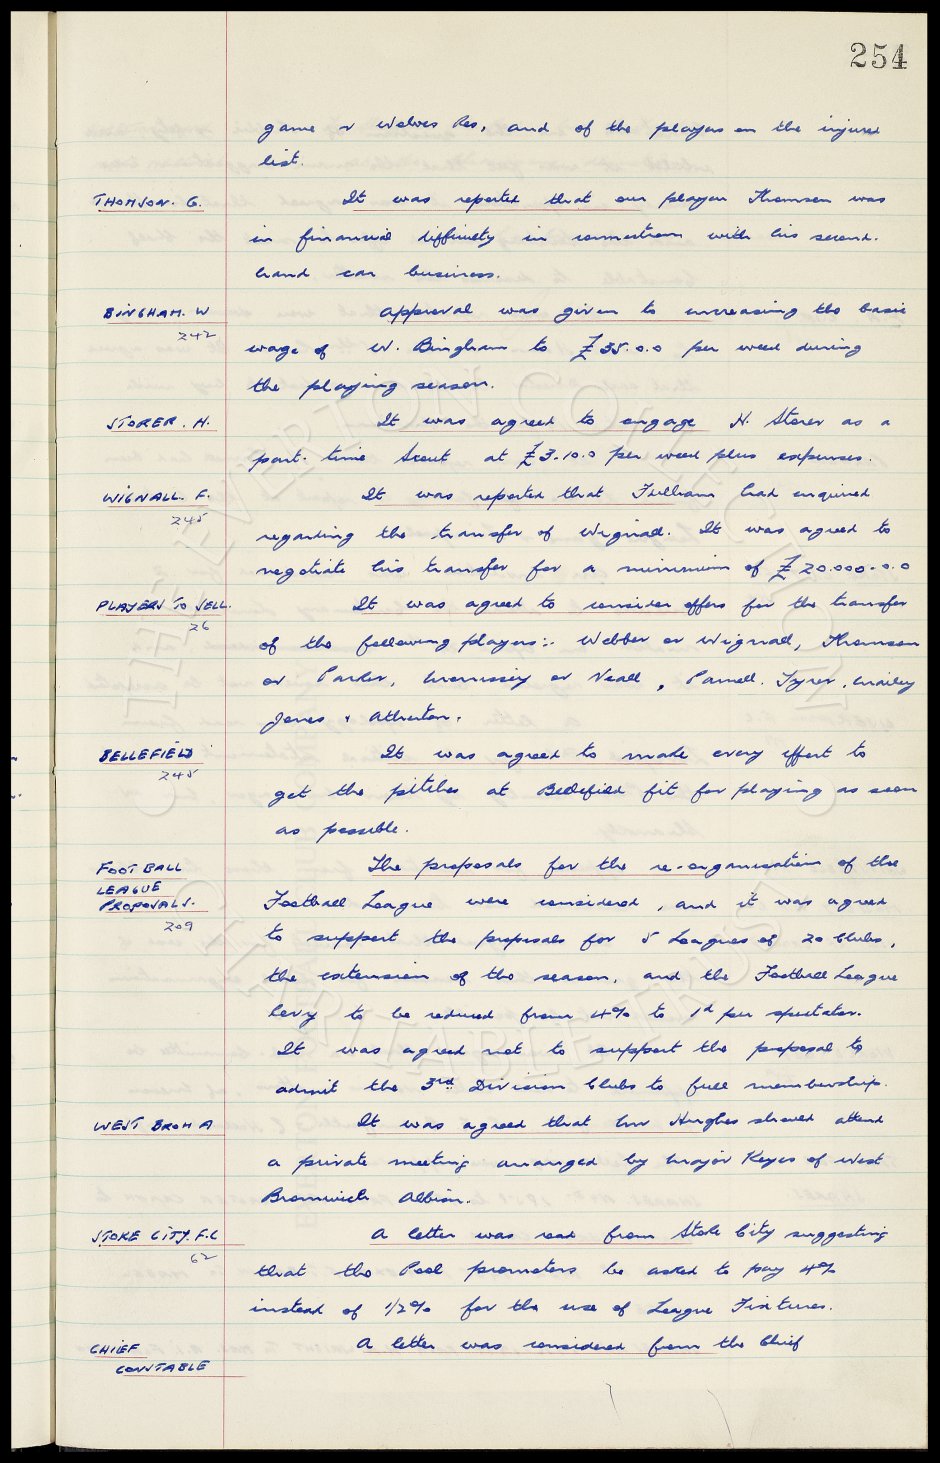 254
game v Wolves Res, and of the players on the injured
list.
THOMSON. G. It was reported that our player Thomson was
in financial difficulty in connection with his second-
hand car business.
BINGHAM. W approval was given to increasing the basic
242
wage of W. Bingham to £35.0.0 per week during
the playing season.
STORER. H. It was agreed to engage H. Storer as a
part-time Scout at £3.10.0 per week plus expenses.
WIGNALL. F. It was reported that Fulham had enquired
245
regarding the transfer of Wignall. It was agreed to
negotiate his transfer for a minimum of £20.000.0.0
PLAYERS TO SELL. It was agreed to consider offers for the transfer
26
of the following players:- Webber or Wignall, Thomson
or Parker, Morrissey or Veall, Parnell. Tyrer,
Jones & Atherton.
BELLEFIELD It was agreed to make every effort to
245
get the pitches at Bellefield fit for playing as soon
as possible.
FOOTBALL The proposals for the re-organisation of the
LEAGUE
PROPOSALS. Football League were considered, and it was agreed
209
to support the proposals for 5 Leagues of 20 Clubs,
the extension of the season, and the Football League
Levy to be reduced from 4% to 1d per spectator.
It was agreed not to support the proposal to
admit the 3rd Division Clubs to full membership.
WEST BROM A It was agreed that Mr Hughes should attend
a private meeting arranged by Major Keys of West
Bromwich Albion.
STOKE CITY. F.C A letter was read from Stoke City suggesting
62
that the Pool promoters be asked to pay 4%
instead of 1/2% for the use of League Fixtures.
CHIEF A letter was considered from the Chief
CONSTABLE
THE EVERTON COLLECTION
CHARITABLE TRUST